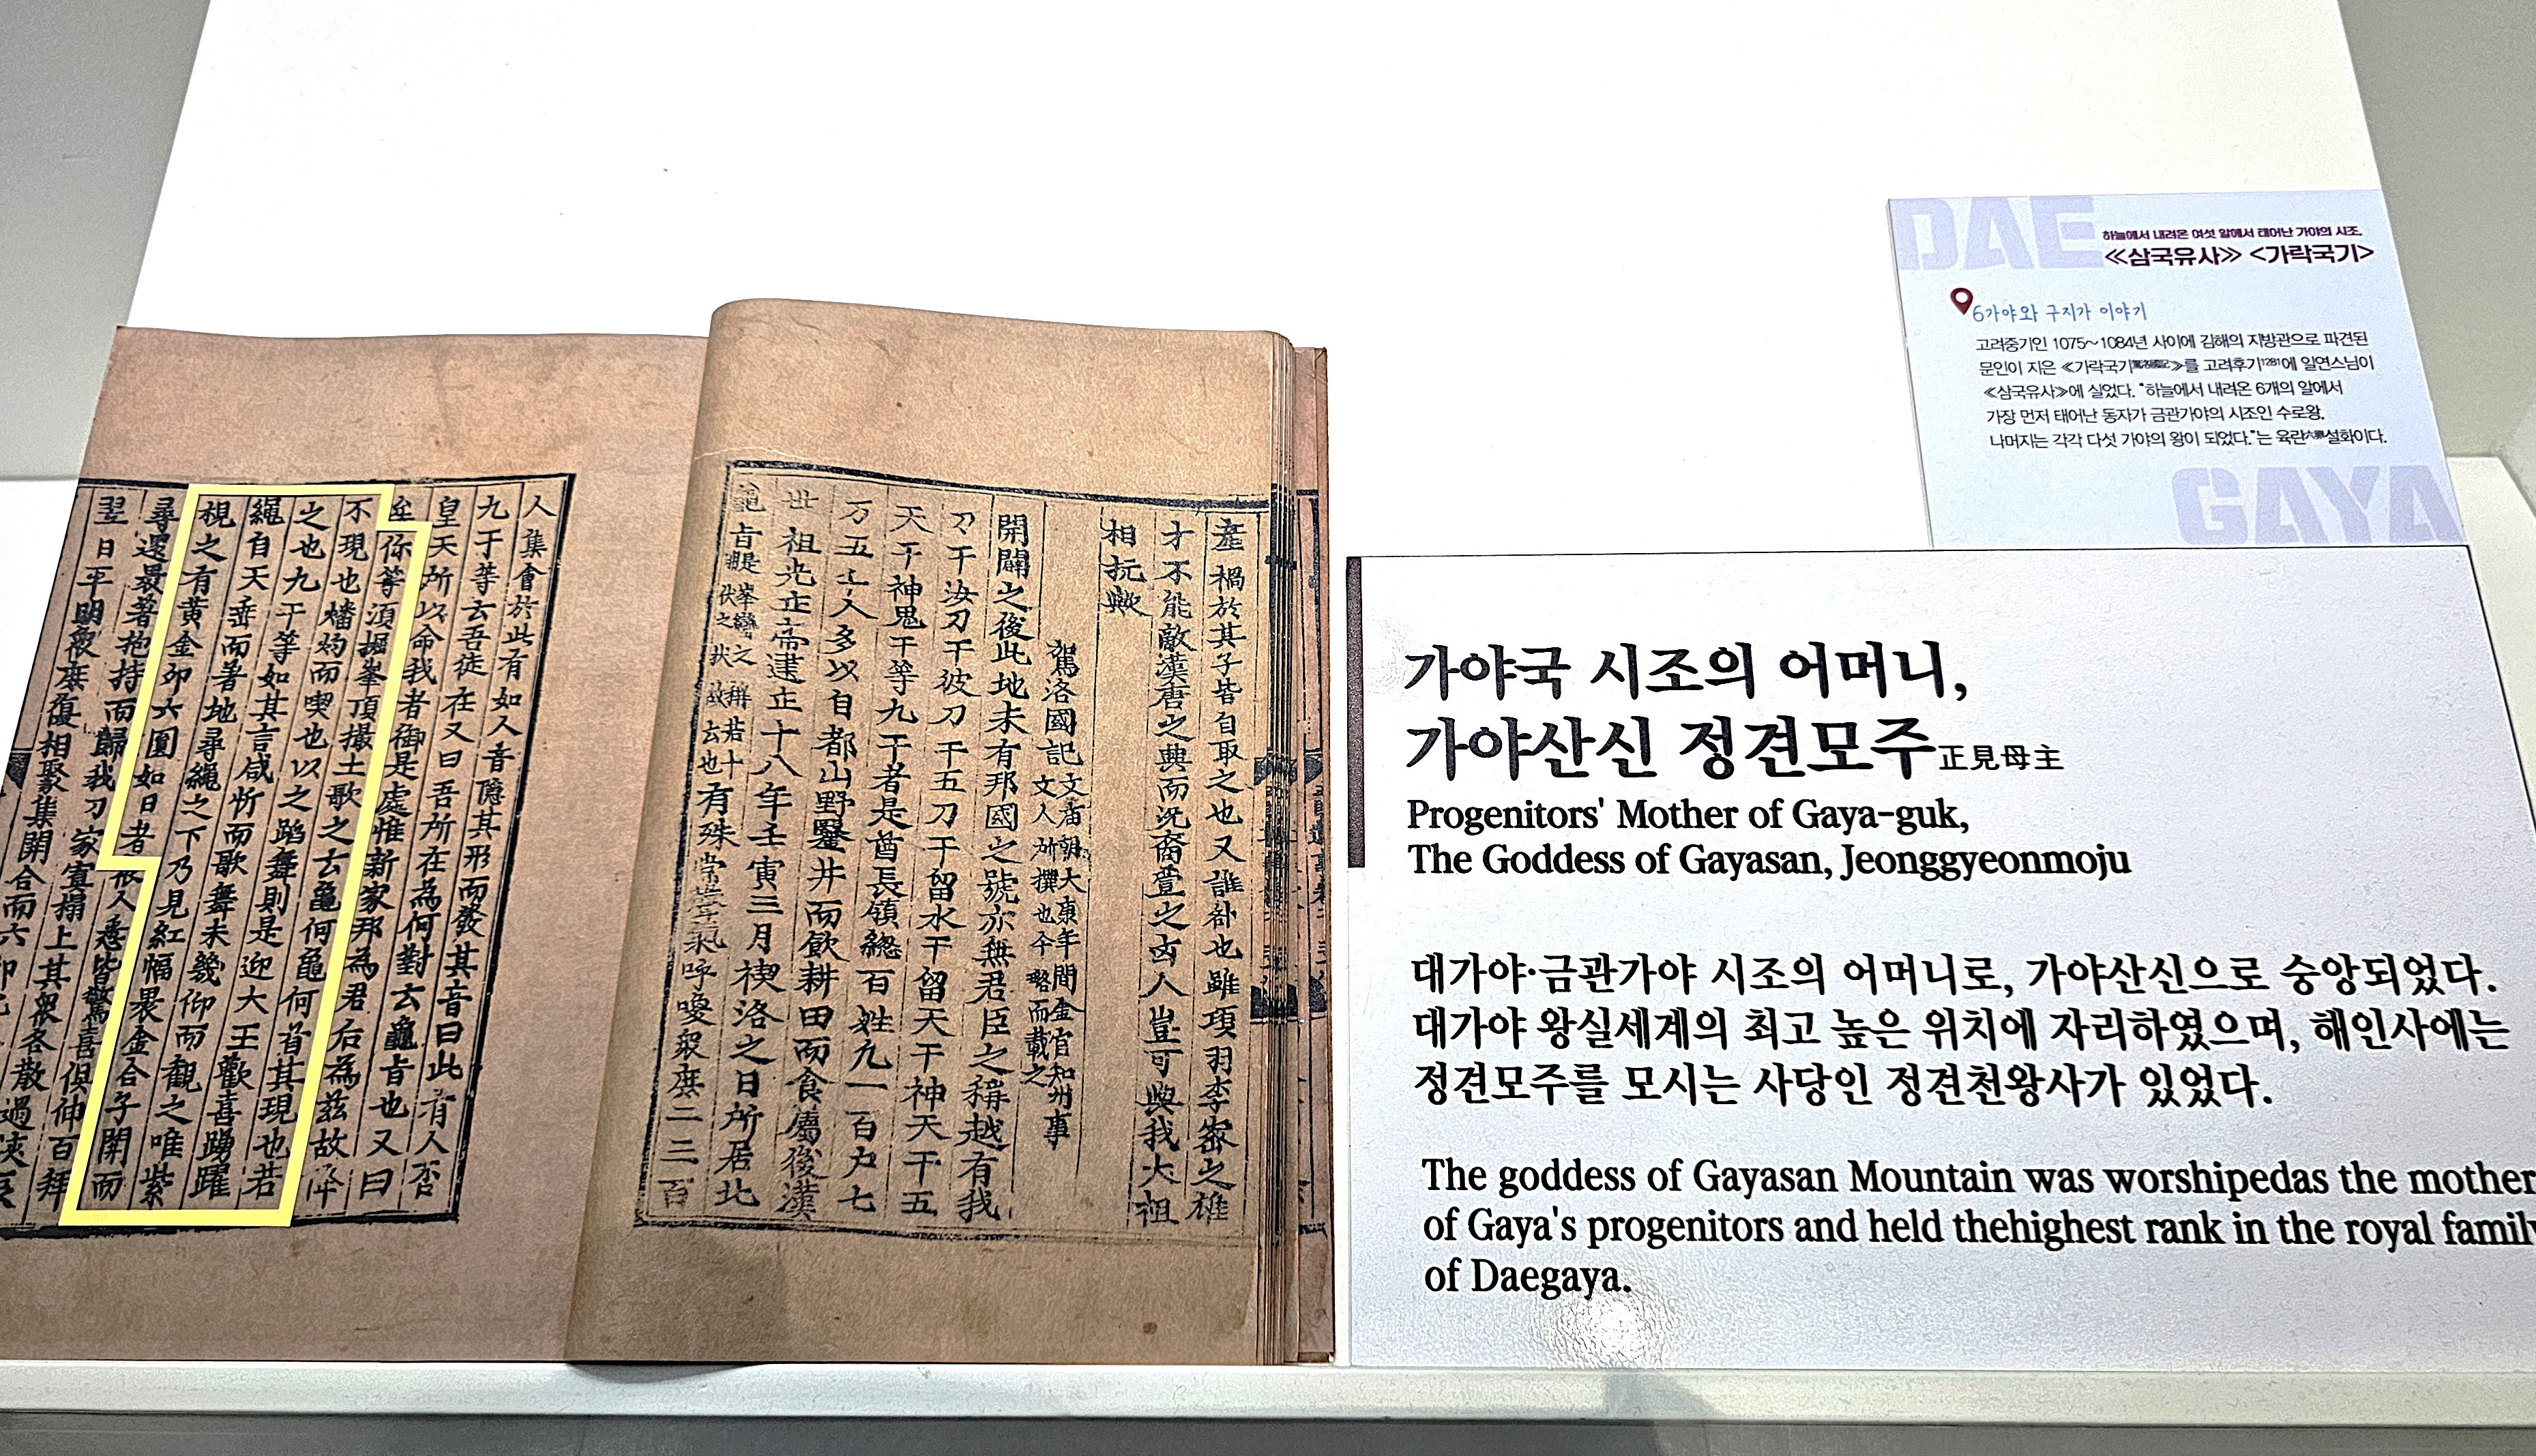 產禍於其子皆自取之也又誰咎也雖項羽李密之雄
才不能敵漢唐之興而況裔萱之凶人豈可與我太祖
相抗歟
駕洛國記文廟朝大康年間金官知州事
文人所撰也今略而載之
開闢之後此地未有邦國之號亦無君臣之稱越有我
刀干汝刀干彼刀干五刀干留水干留天干神天干五
天干神鬼干等九干者是酋長領總百姓九一百戶七
万五千人多以自都山野鑿井而飲耕田而食屬後漢
世祖光正帝建正十八年壬寅三月禊洛之日所居北
龜旨是峯巒之稱若十朋伏之狀故云也有殊常聲氣呼喚衆庶二三百
人集會於此有如人音隱其形而發其音曰此有人否
九干等云吾徒在又曰吾所在為何對云龜旨也又曰
皇天所以命我者御是處惟新家邦為君后為茲故降
矣你等須掘峯頂撮土歌之云龜何龜何首其現也若
不現也燔灼而喫也以之蹈舞則是迎大王歡喜踴躍
之也九干等如其言咸忻而歌舞未幾仰而觀之唯紫
繩自天垂而著地尋繩之下乃見紅幅裹金合子開而
視之有黃金卵六圓如日者衆人悉皆驚喜俱伸百拜
尋還裹著抱持而歸我刀家寘榻上其衆各散過浹辰
翌日平明衆庶復相聚集開合而六卵
DAE
하늘에서 내려온 여섯 알에서 태어난 가야의 시조,
≪삼국유사≫ <가락국기>
6가야와 구지가 이야기
고려중기인 1075~1084년 사이에 김해의 지방관으로 파견된
문인이 지은 ≪가락국기≫를 고려후기1281에 일연스님이
≪삼국유사≫에 실었다. "하늘에서 내려온 6개의 알에서
가장 먼저 태어난 동자가 금관가야의 시조인 수로왕,
나머지는 각각 다섯 가야의 왕이 되었다."는 육란六卵설화이다.
GAYA
가야국 시조의 어머니,
가야산신 정견모주正見母主
Progenitors' Mother of Gaya-guk,
The Goddess of Gayasan, Jeonggyeonmoju
대가야·금관가야 시조의 어머니로, 가야산신으로 숭앙되었다.
대가야 왕실세계의 최고 높은 위치에 자리하였으며, 해인사에는
정견모주를 모시는 사당인 정견천왕사가 있었다.
The goddess of Gayasan Mountain was worshipedas the mother
of Gaya's progenitors and held thehighest rank in the royal family
of Daegaya.